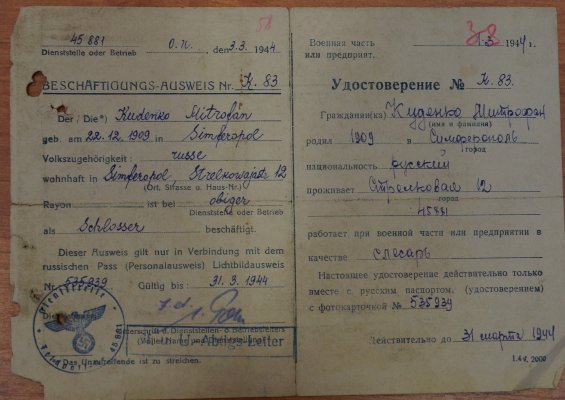 45 881 O.U. , den 3.3. 1944.
Dienststelle oder Betrieb
BESCHÄFTIGUNGS-AUSWEIS Nr. K. 83
Der / Die*) Kudenko Mitrofan
geb. am 22.12.1909 in Simferopol
Volkszugehörigkeit: russe
wohnhaft in Simferopol, Strelkowajastr 12
(Ort, Strasse u. Haus-Nr.)
Rayon ist bei obiger
Dienststelle oder Betrieb
als Schlosser beschäftigt.
Dieser Ausweis gilt nur in Verbindung mit dem
russischen Pass (Personalausweis) Lichtbildausweis
Nr. 535939 Gültig bis: 31. 3. 1944
Dienststelle
45 881
Unterschrift d. Dienststellen- o. Betriebsleiters
(Voller Name und Dienststellung)
U.-Abtlgs-Leiter
*) Das Unzutreffende ist zu streichen.
58
38
Военная часть 1.3 1944 г.
или предприят.
Удостоверение № К. 83.
Гражданин(ка) Куденко Митрофан
(имя и фамилия)
родил 1909 в Симферополь
город
национальность русский
проживает Стрелковая 12
город
45881
работает при военной части или предприятии в
качестве слесарь
Настоящее удостоверение действительно только
вместе с русским паспортом. (удостоверением)
с фотокарточкой № 535939
Действительно до 31 марта 1944
2000